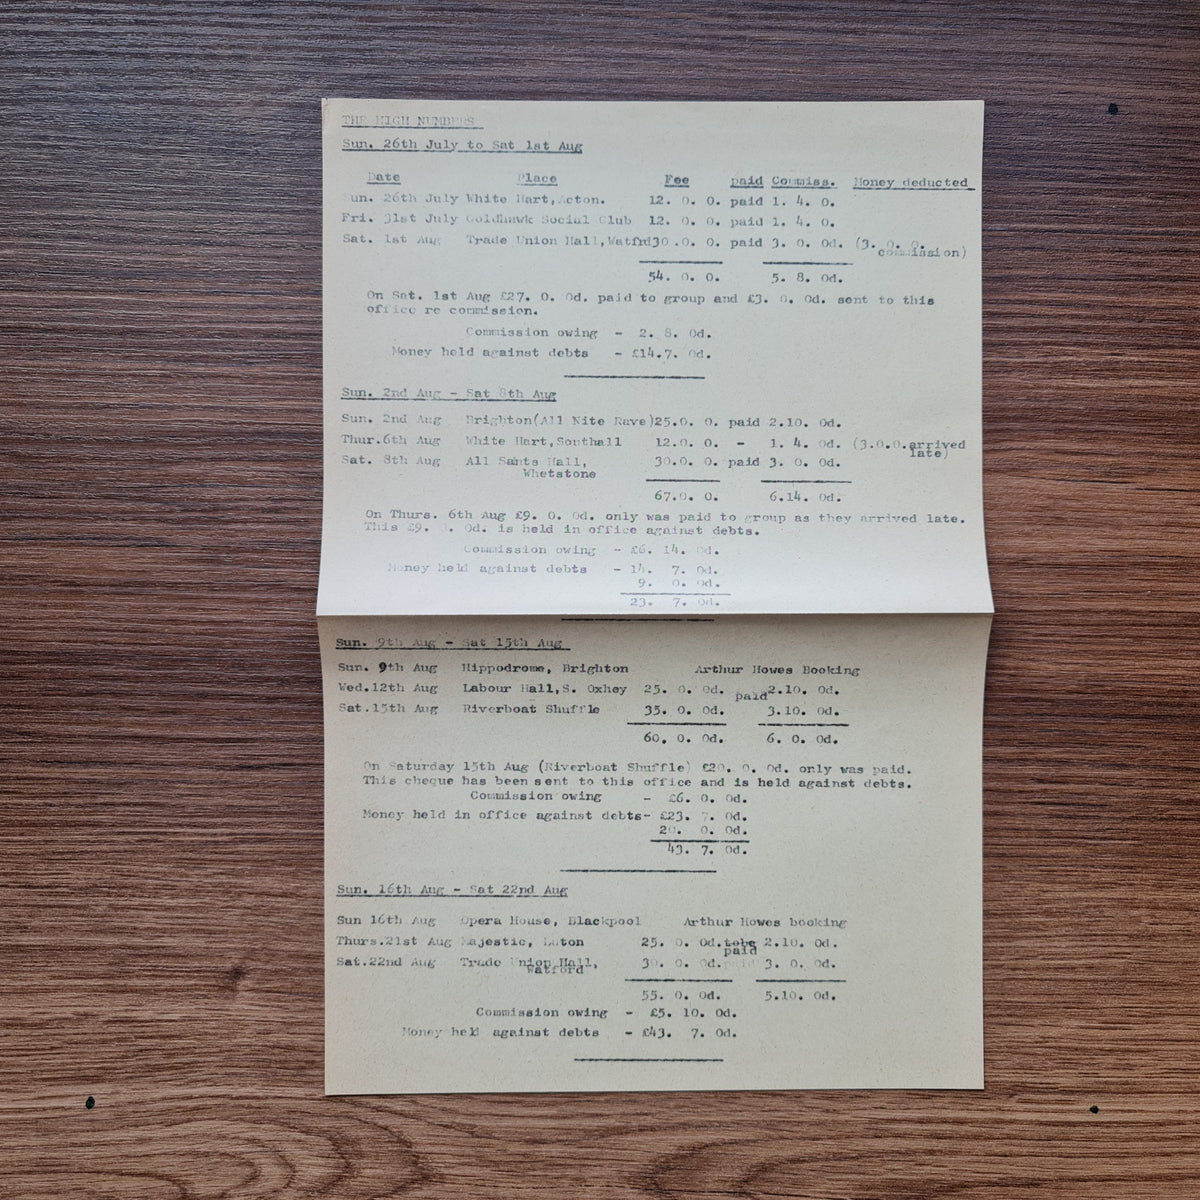 THE HIGH NUMBERS
Sun. 26th July to Sat 1st Aug
Date Place Fee paid Commiss. Money deducted
Sun. 26th July White Hart, Acton. 12. 0. 0. paid 1. 4. 0.
Fri. 31st July Goldhawk Social Club 12. 0. 0. paid 1. 4. 0.
Sat. 1st Aug Trade Union Hall, Watfrd 30 .0. 0. paid 3. 0. 0d. (3. 0. 0.
commission)
54. 0. 0. 5. 8. 0d.
On Sat. 1st Aug £27. 0. 0d. paid to group and £3. 0. 0d. sent to this
office re commission.
Commission owing - 2. 8. 0d.
Money held against debts - £14.7. 0d.
Sun. 2nd Aug - Sat 8th Aug
Sun. 2nd Aug Brighton(All Nite Rave)25.0. 0. paid 2.10. 0d.
Thur.6th Aug White Hart, Southall 12.0. 0. - 1. 4. 0d. (3.0.0.arrived
late)
Sat. 8th Aug All Sants Hall, 30.0. 0. paid 3. 0. 0d.
Whetstone
67.0. 0. 6.14. 0d.
On Thurs. 6th Aug £9. 0. 0d. only was paid to group as they arrived late.
This £9. 0. 0d. is held in office against debts.
Commission owing - £6. 14. 0d.
Money held against debts - 14. 7. 0d.
9. 0. 0d.
23. 7. 0d.
Sun. 9th Aug - Sat 15th Aug
Sun. 9th Aug Hippodrome, Brighton Arthur Howes Booking
Wed.12th Aug Labour Hall,S. Oxhey 25. 0. 0d. paid 2.10. 0d.
Sat.15th Aug Riverboat Shuffle 35. 0. 0d. 3.10. 0d.
60. 0. 0d. 6. 0. 0d.
On Saturday 15th Aug (Riverboat Shuffle) £20. 0. 0d. only was paid.
This cheque has been sent to this office and is held against debts.
Commission owing - £6. 0. 0d.
Money held in office against debts- £23. 7. 0d.
20. 0. 0d.
43. 7. 0d.
Sun. 16th Aug - Sat 22nd Aug
Sun 16th Aug Opera House, Blackpool Arthur Howes booking
Thurs.21st Aug Majestic, Luton 25. 0. 0d. tobe 2.10. 0d.
paid
Sat.22nd Aug Trade Union Hall, 30. 0. 0d. paid 3. 0. 0d.
Watford
55. 0. 0d. 5.10. 0d.
Commission owing - £5. 10. 0d.
Money held against debts - £43. 7. 0d.